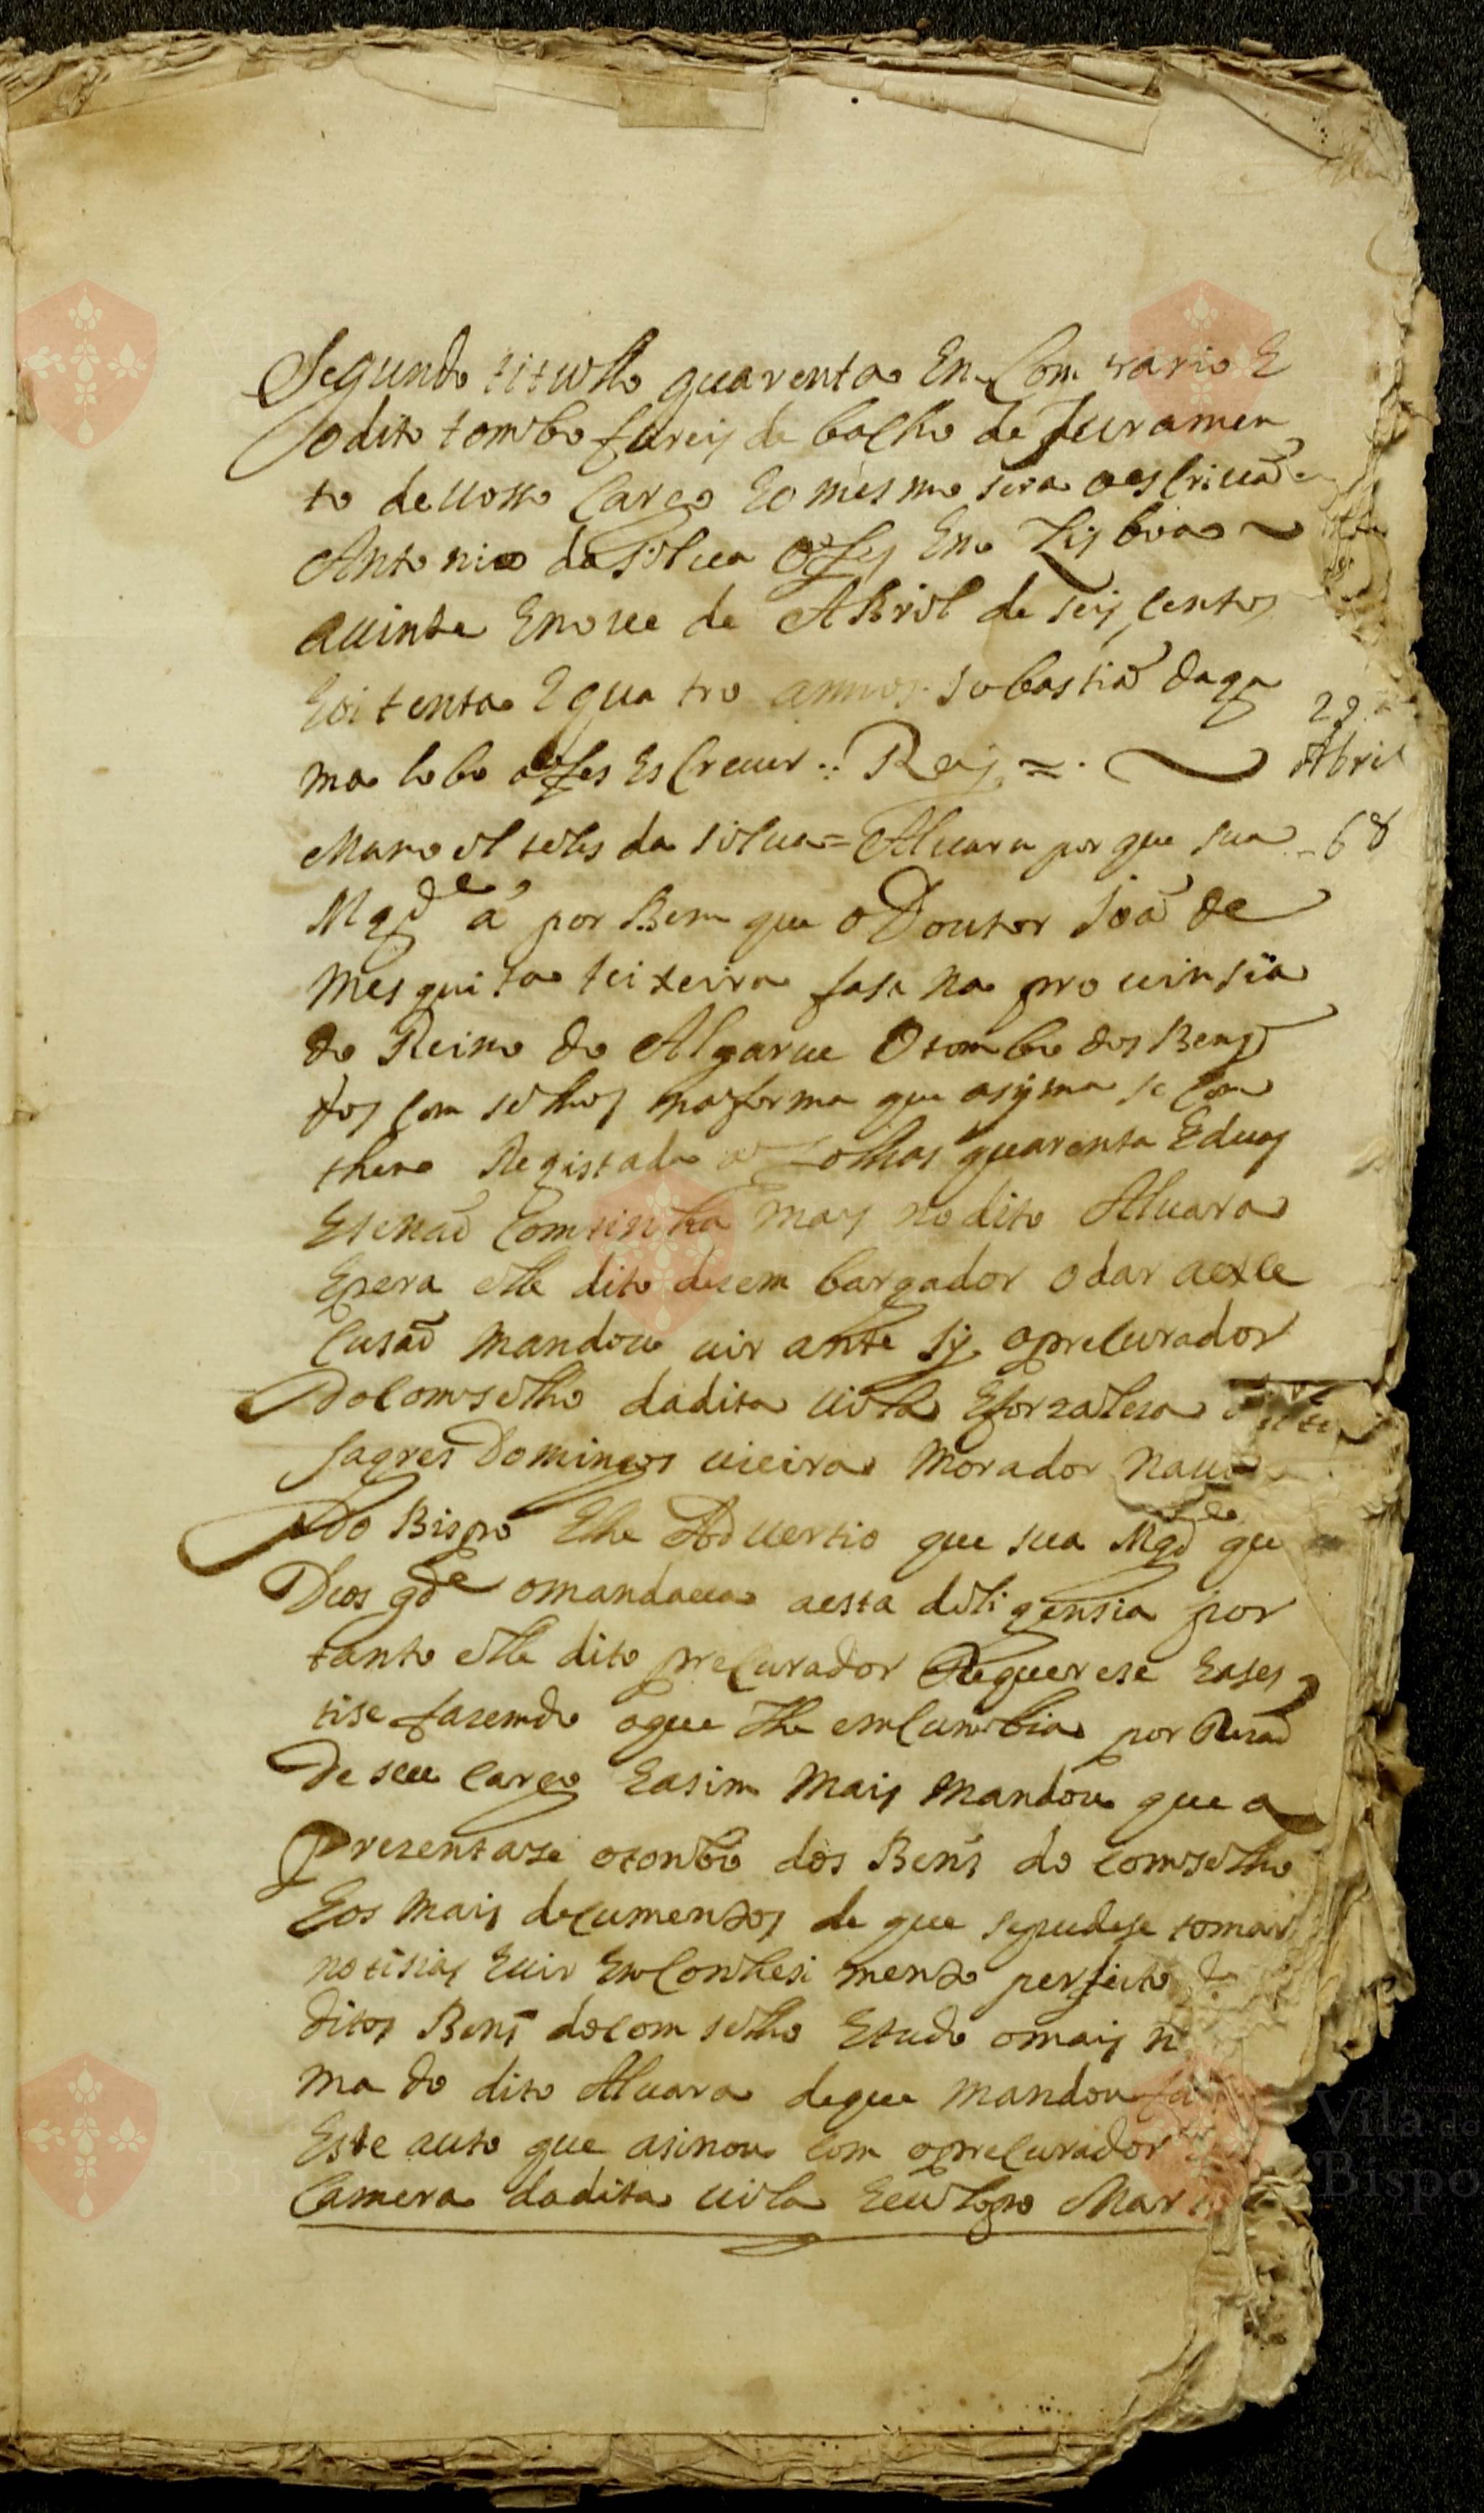 Segundo titullo quarenta Em Comtrario E
o dito tombo fareis de baicho de Juramen
to de uosso Cargo Eo mesmo sera o escriuaõ
Antonio da silua o fes Em Lisboa
a uinte E noue de Abril de seis sentos
E oitenta E qua tro annos sebastiaõ da ga
ma lobo a fes Escreuer Rey =
29
Abril
Manoel teles da silua = Aluara por que sua
68
Mgde á por Bem que o Doutor Joaõ de
mesquita teixeira fasa na prouinsia
do Reino do Algarue O tombo dos Bens
dos com selhos na forma que asyma se com
them Registado a folhas quarenta E duas
E se naõ Comtinha mais no dito Aluara
E pera elle dito desem bargador o dar a exse
Cusaõ mandou uir ante sy o precurador
do Comselho da dita uila E fortalesa
sagres Domingos uieira morador na
Do Bispo E lhe Aduertio que sua Mgde que
Deos gde o mandaua a esta diligensia por
tanto elle dito precurador Requerese E ases
tise fasemdo o que lhe emCumbia por Resaõ
de seu Cargo E asim mais mandou que a
prezentase o tombo dos Bens do comselho
E os mais decumentos de que se pudese tomar
notisias E uir Em Conhesi mento perfeito
ditos Bens do com selho E tudo o mais n
ma do dito Aluara de que mandou fa
Este auto que asinou com o precurador
Camera da dita uila E eu lopo Mar